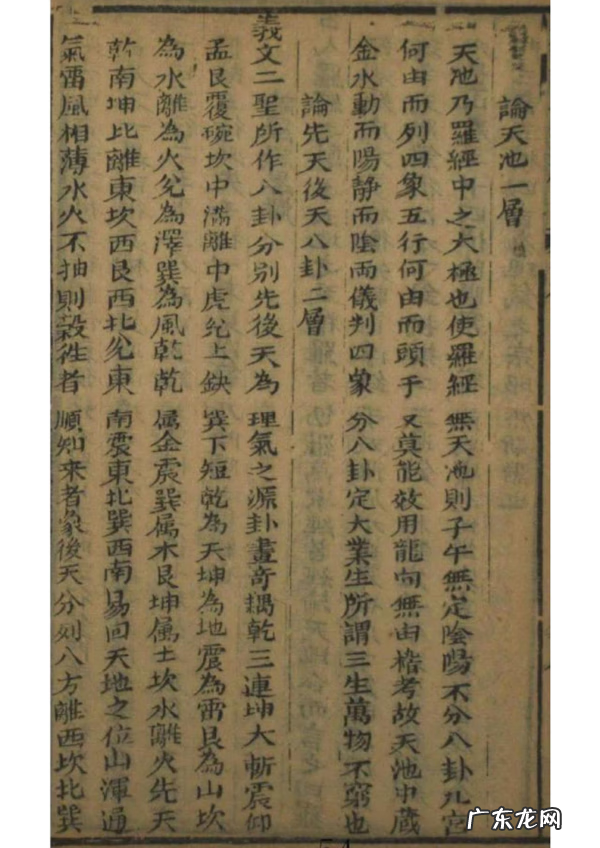 論天池一層
天池乃羅經中之太極也使羅經無天池則子午無定陰陽不分八卦九宮
何由而列四象五行何由而頭于又莫能效用龍向無由稽考故天池中蔵
金水動而陽静而陰两儀判四象分八卦定大業生所謂三生萬物不窮也
論先天後天八卦二層
羲文二聖所作八卦分別先後天為理氣之源卦畫奇耦乾三連坤大斷震仰
孟艮覆碗坎中滿離中虎兊上缺巽下短乾為天坤為地震為雷艮為山坎
為水離為火兊為澤巽為風乾乾属金震巽属木艮坤属土坎水離火先天
乾南坤北離東坎西艮西北兊東南震東北巽西南易曰天地之位山澤通
氣雷風相薄水火不抽則穀徃者順知来者象後天分列八方離西坎北巽
54
广东龙网